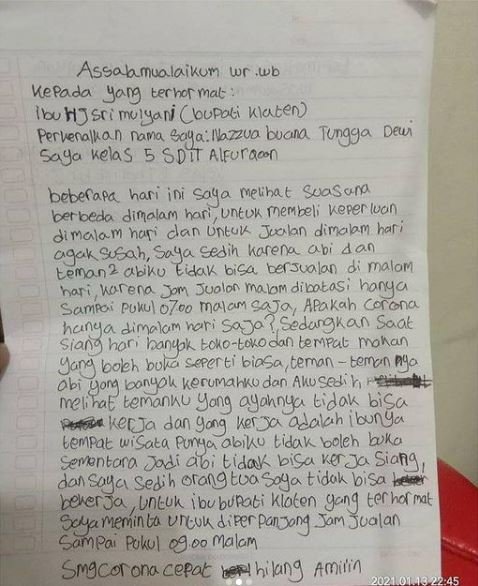 Assalamualaikum wr.wb
Kepada yang terhormat :
ibu HJ Sri mulyani (bupati Klaten)
Perkenalkan nama saya: Nazzua buana Tungga Dewi
Saya kelas 5 SDIT Alfurqoon
beberapa hari ini saya melihat suasana
berbeda dimalam hari, untuk membeli keperluan
dimalam hari dan untuk Jualan dimalam hari
agak susah, saya sedih karena abi dan
teman2 abiku tidak bisa berjualan di malam
hari, karena Jam Jualan malam dibatasi hanya
Sampai pukul 07.00 malam saja, Apakah corona
hanya dimalam hari saja?, Sedangkan Saat
siang hari banyak toko-toko dan tempat makan
yang boleh buka seperti biasa, teman-teman nya
abi yang banyak kerumahku dan Aku sedih,
melihat temanku yang ayahnya tidak bisa
kerja dan yang kerja adalah ibunya
tempat wisata Punya abiku tidak boleh buka
Sementara Jadi abi tidak bisa kerja siang,
dan saya sedih orang tua saya tidak bisa
bekerja, untuk ibu bupati Klaten yang terhormat
Saya meminta untuk diperpanjang Jam Jualan
Sampai Pukul 09.00 malam
Smg corona cepat hilang Amiin
2021.01.13 22:45